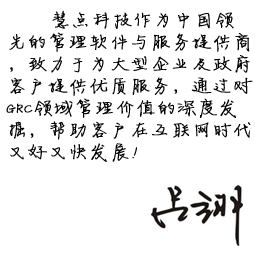 慧点科技作为中国领
先的管理软件与服务提供商
，致力于为大型企业及政府
客户提供优质服务，通过对
GRC领域管理价值的深度发
掘，帮助客户在互联网时代
又好又快发展！